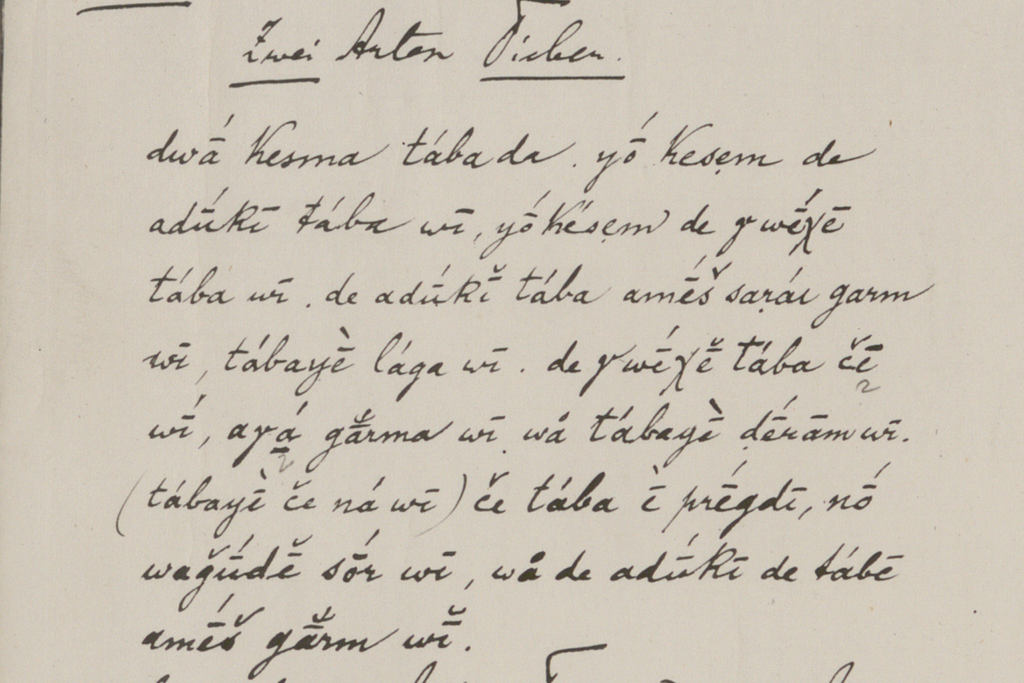 Zwei Arten Fieber.
dwā́ kesma tába da. yṓ kesẹm de
adū́kī tába wī, yṓ késẹm de γwéχē
tába wī. de adū́kī̆ tába amḗš sarái garm
wī, tábayḕ lága wī. de γwéχē̆ tába čē
wī́, aγá gā̆rma wī wå tábayḕ ḍērām wī.
(tábayḕ če ná wī) če tába ī̀ prḗgdī, nṓ
waǧū́dē̆ sṓr wī, wå de adū́kī de tábē
amḗš gā̆rm wī̆.